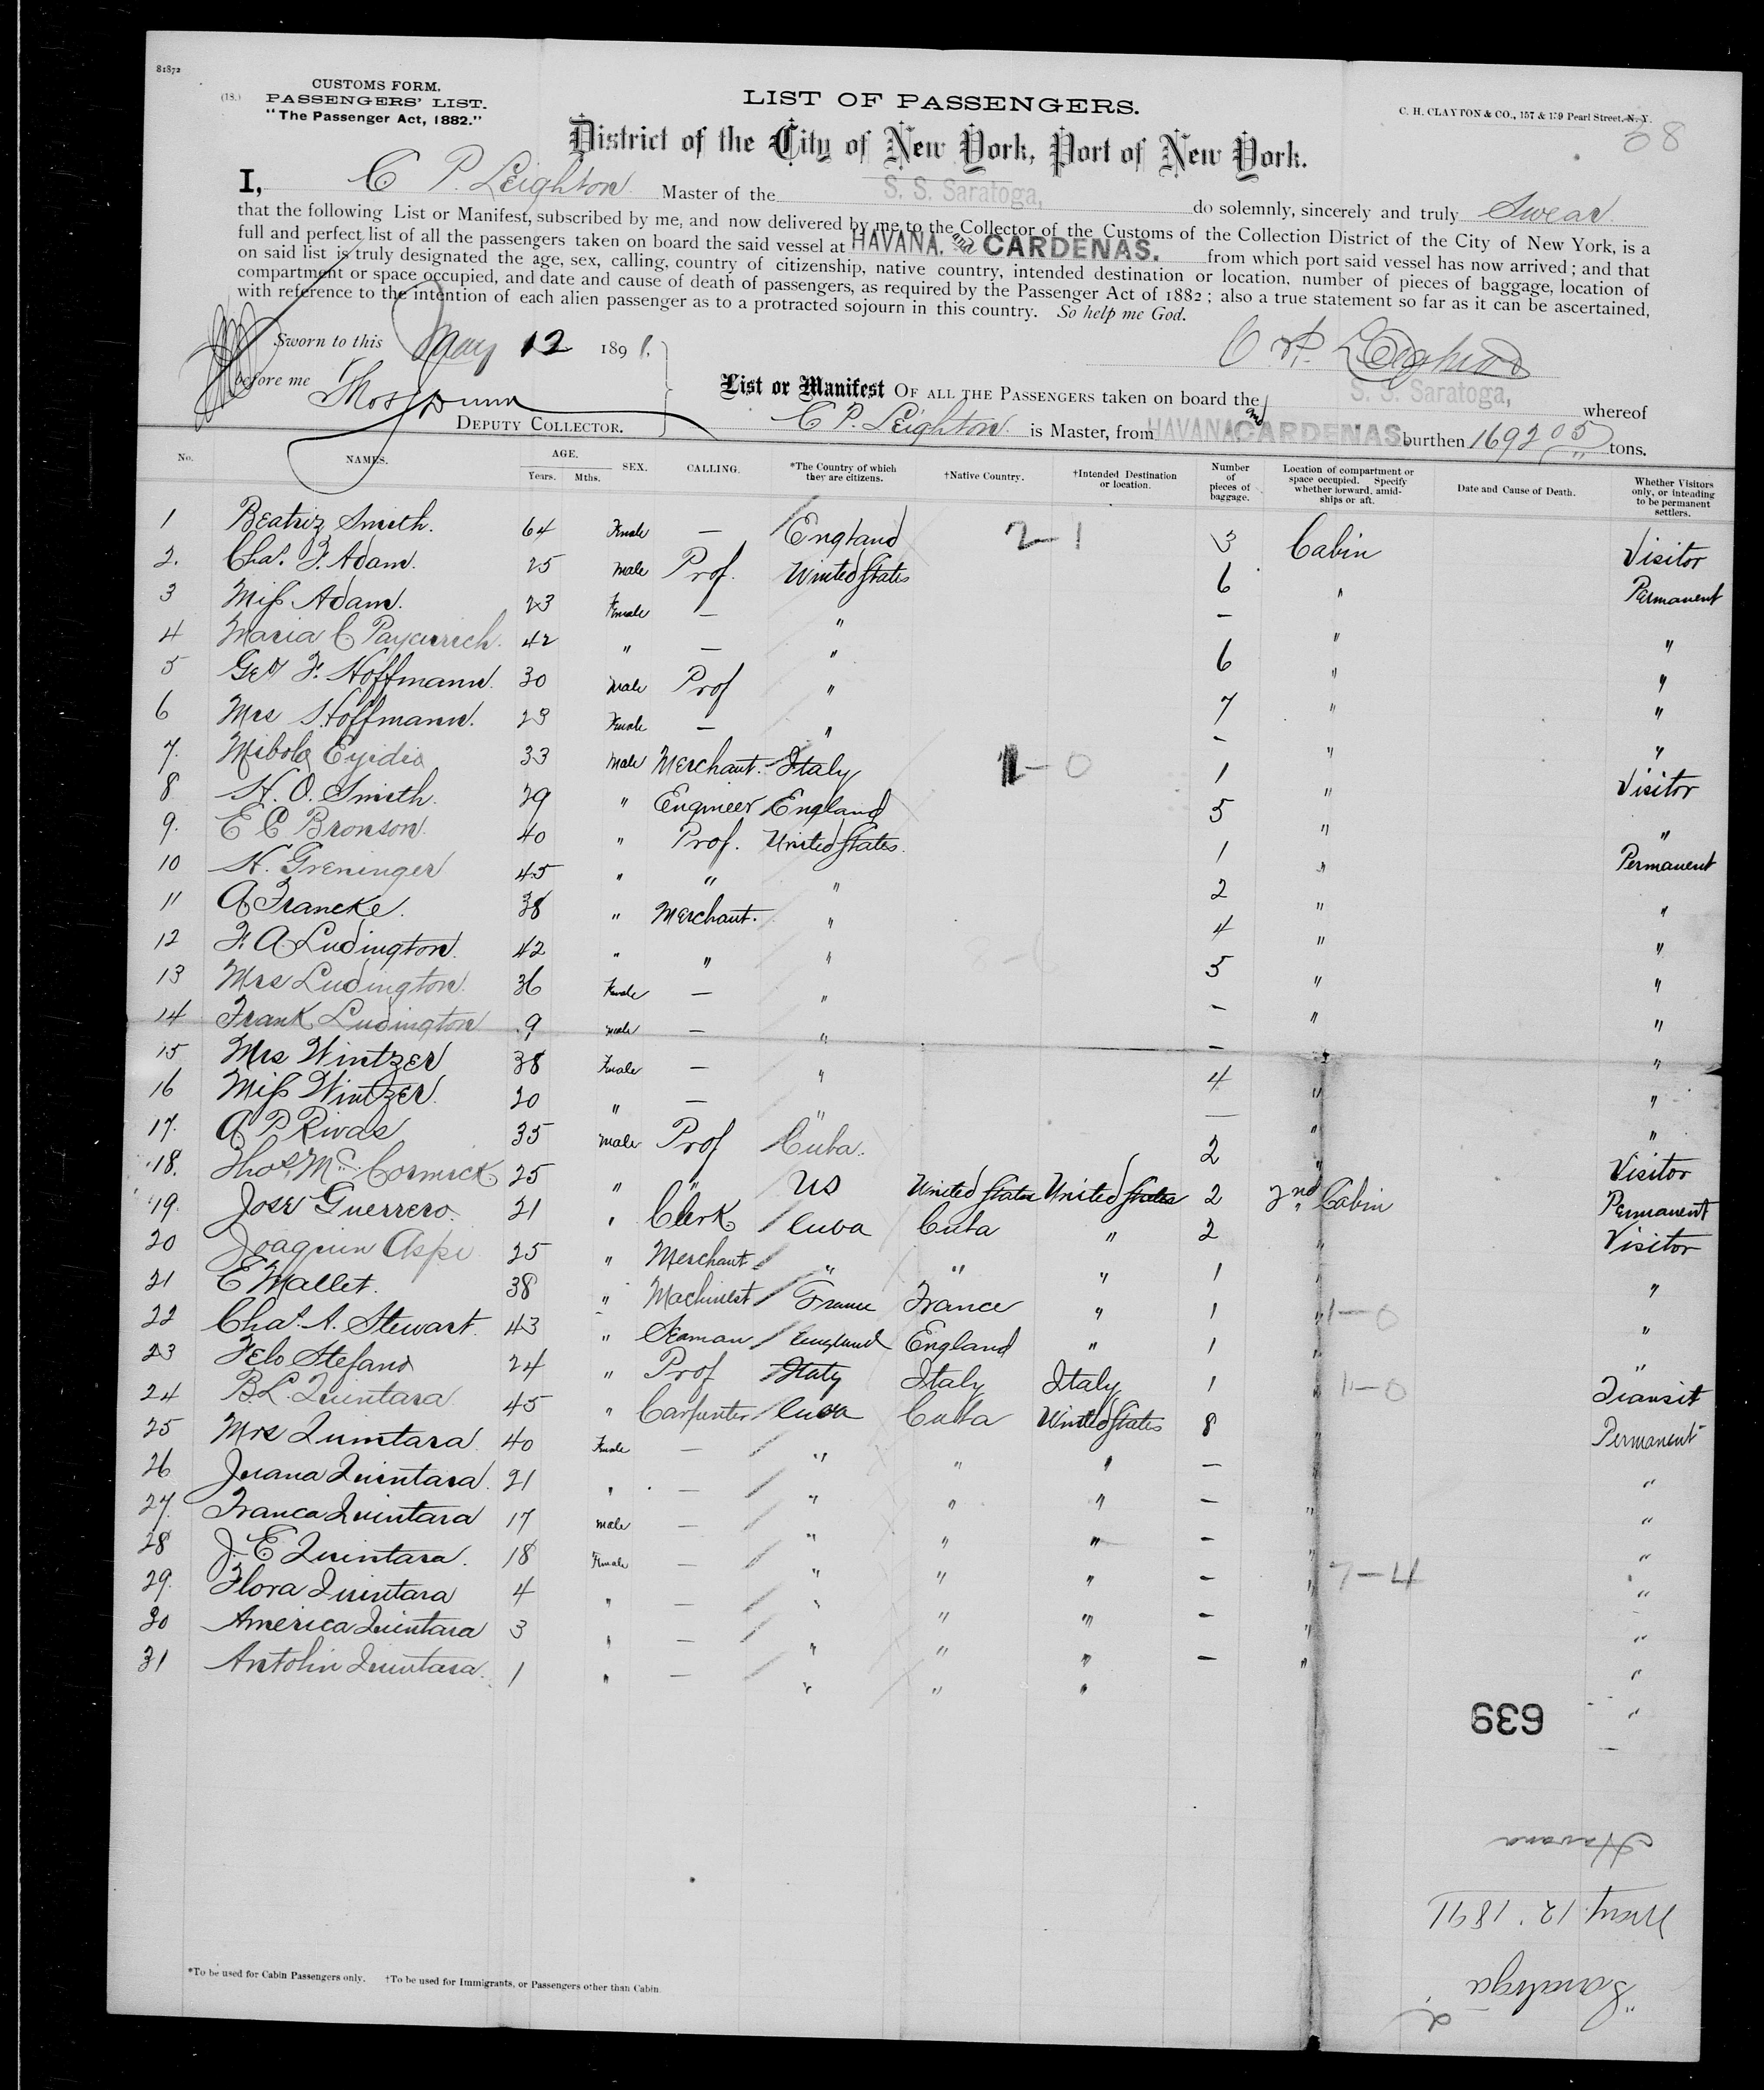 81872
(18.)
CUSTOMS FORM.
PASSENGERS' LIST.
"The Passenger Act, 1882."
LIST OF PASSENGERS.
C. H. CLAYTON & CO., 157 & 159 Pearl Street, N. Y.
38
District of the City of New York, Port of New York.
I, C P. Leighton Master of the S. S. Saratoga, do solemnly, sincerely and truly Swear
that the following List or Manifest, subscribed by me, and now delivered by me to the Collector of the Customs of the Collection District of the City of New York, is a
full and perfect list of all the passengers taken on board the said vessel at HAVANA. and CARDENAS. from which port said vessel has now arrived; and that
on said list is truly designated the age, sex, calling, country of citizenship, native country, intended destination or location, number of pieces of baggage, location of
compartment or space occupied, and date and cause of death of passengers, as required by the Passenger Act of 1882; also a true statement so far as it can be ascertained,
with reference to the intention of each alien passenger as to a protracted sojourn in this country. So help me God.
Sworn to this May 12 1891,
C P. Leighton
before me Thos Dunn
DEPUTY COLLECTOR.
List or Manifest OF ALL THE PASSENGERS taken on board the S. S. Saratoga, whereof
C P. Leighton is Master, from HAVANA and CARDENAS. burthen 1692 05 tons.
No. NAMES. AGE. Years. Mths. SEX. CALLING. *The Country of which they are citizens. †Native Country. †Intended Destination or location. Number of pieces of baggage. Location of compartment or space occupied. Specify whether forward, amidships or aft. Date and Cause of Death. Whether Visitors only, or intending to be permanent settlers.
1 Beatriz Smith. 64 Female — England 2-1 3 Cabin Visitor
2. Chas. F. Adam. 25 Male Prof. United States 6 " Permanent
3 Miss Adam. 23 Female — " — " "
4 Maria C 42 " — " 6 " "
5 Geo F. Hoffmann. 30 Male Prof " 7 " "
6 Mrs Hoffmann. 29 Female — " — " "
7. 33 Male Merchant. Italy 1-0 1 " Visitor
8 H. O. Smith. 29 " Engineer England 5 " "
9. E C Bronson. 40 " Prof. United States. 1 " Permanent
10 H. Greninger 45 " " " 2 " "
11 A Francke. 38 " Merchant. " 4 " "
12 F. A. Ludington. 42 " " " 5 " "
13 Mrs Ludington. 36 Female — " — " "
14 Frank Ludington 9 Male — " — " "
15 Mrs Wintzer 38 Female — " 4 " "
16 Miss Wintzer. 20 " — " — " "
17. A P Rivas 35 Male Prof Cuba. 2 " Visitor
18. Thos. Mc. Cormick 25 " " US United States United States 2 2nd Cabin Permanent
19. Jose Guerrero. 21 " Clerk Cuba Cuba " 2 " Visitor
20 Joaquin Aspe 25 " Merchant " " " 1 " "
21 E Mallet. 38 " Machinist France France " 1 " 1-0 "
22 Chas. A. Stewart. 43 " Seaman England England " 1 " "
23 Felo Stefano 24 " Prof Italy Italy Italy 1 " 1-0 Transit
24 B.L. Quintara 45 " Carpenter Cuba Cuba United States 8 " Permanent
25 Mrs Quintara. 40 Female — " " " — " "
26 Juana Quintara. 21 " — " " " — " "
27. Franca Quintara 17 Male — " " " — " "
28 J. E Quintara. 18 Female — " " " — " 7-4 "
29. Flora Quintara 4 " — " " " — " "
30 America Quintara 3 " — " " " — " "
31 Antolin Quintara. 1 " — " " " "
639
Havana
May. 12. 1891
Saratoga
*To be used for Cabin Passengers only. †To be used for Immigrants, or Passengers other than Cabin.